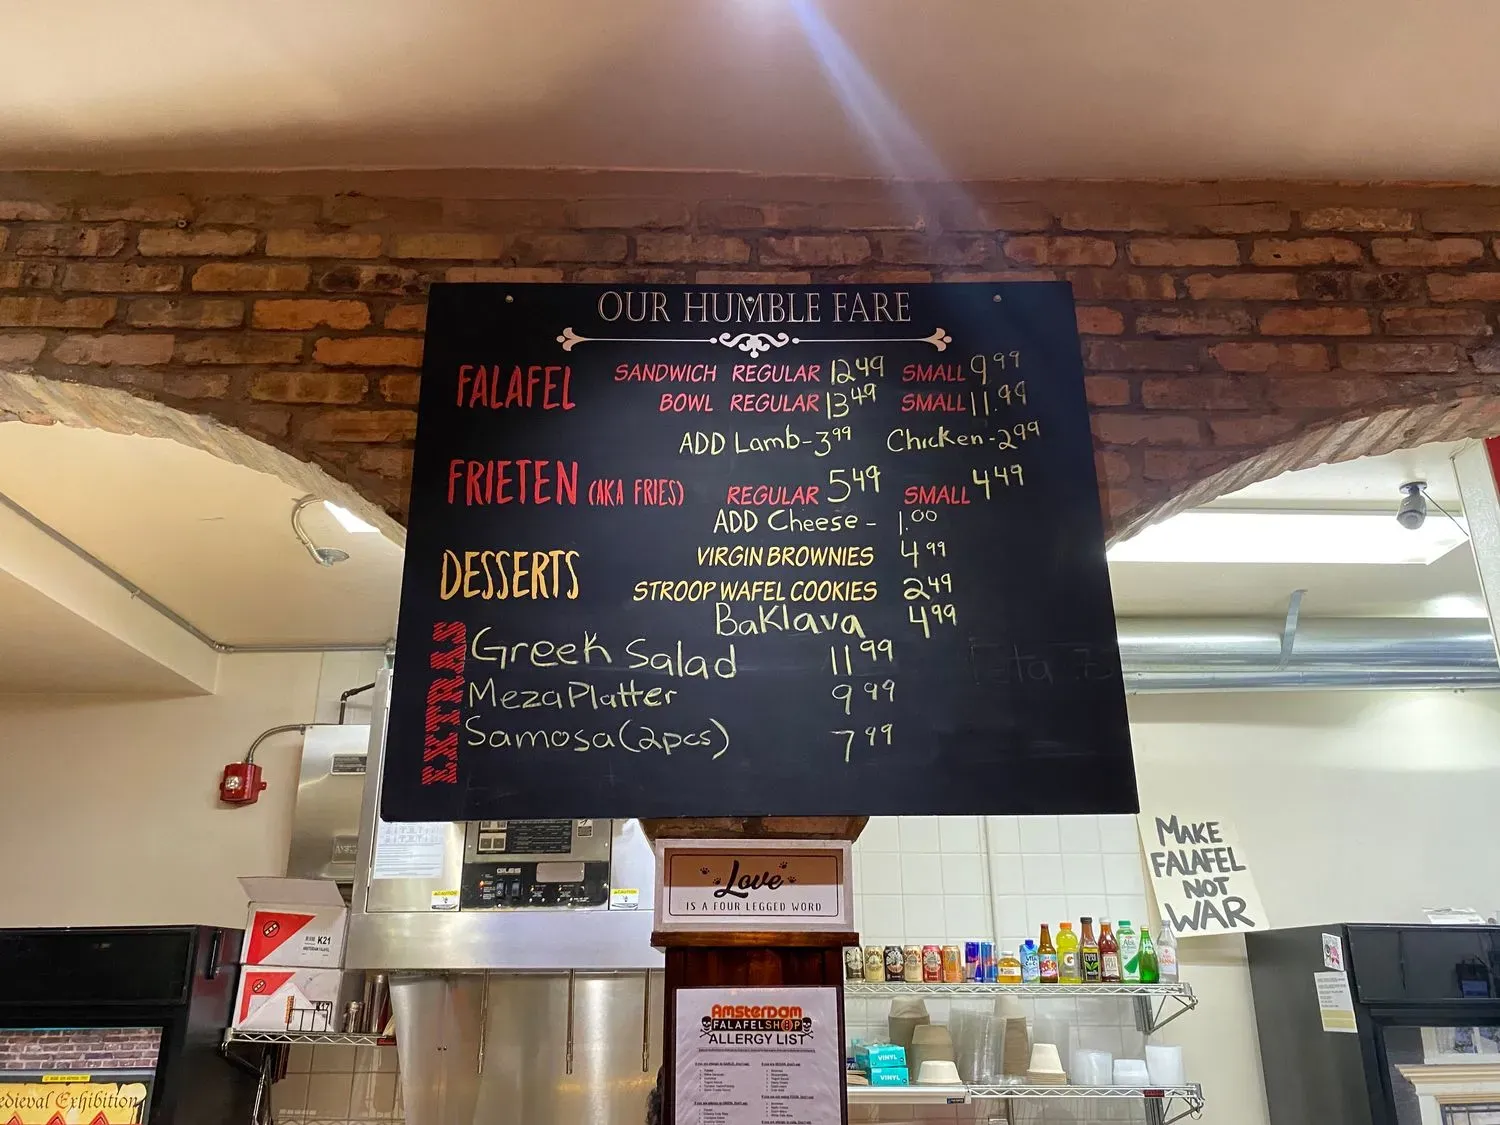 OUR HUMBLE FARE
FALAFEL SANDWICH REGULAR 12.49 SMALL 9.99
BOWL REGULAR 13.49 SMALL 11.99
ADD Lamb-3.99 Chicken-2.99
FRIETEN (AKA FRIES) REGULAR 5.49 SMALL 4.49
ADD Cheese- 1.00
DESSERTS VIRGIN BROWNIES 4.99
STROOP WAFEL COOKIES 2.49
Baklava 4.99
EXTRAS
Greek Salad 11.99
Meza Platter 9.99
Samosa (2pcs) 7.99
MAKE
FALAFEL
NOT
WAR
Love
IS A FOUR LEGGED WORD
Amsterdam
FALAFELSHOP
ALLERGY LIST
K21
VINYL
VINYL
GILES
Exhibition